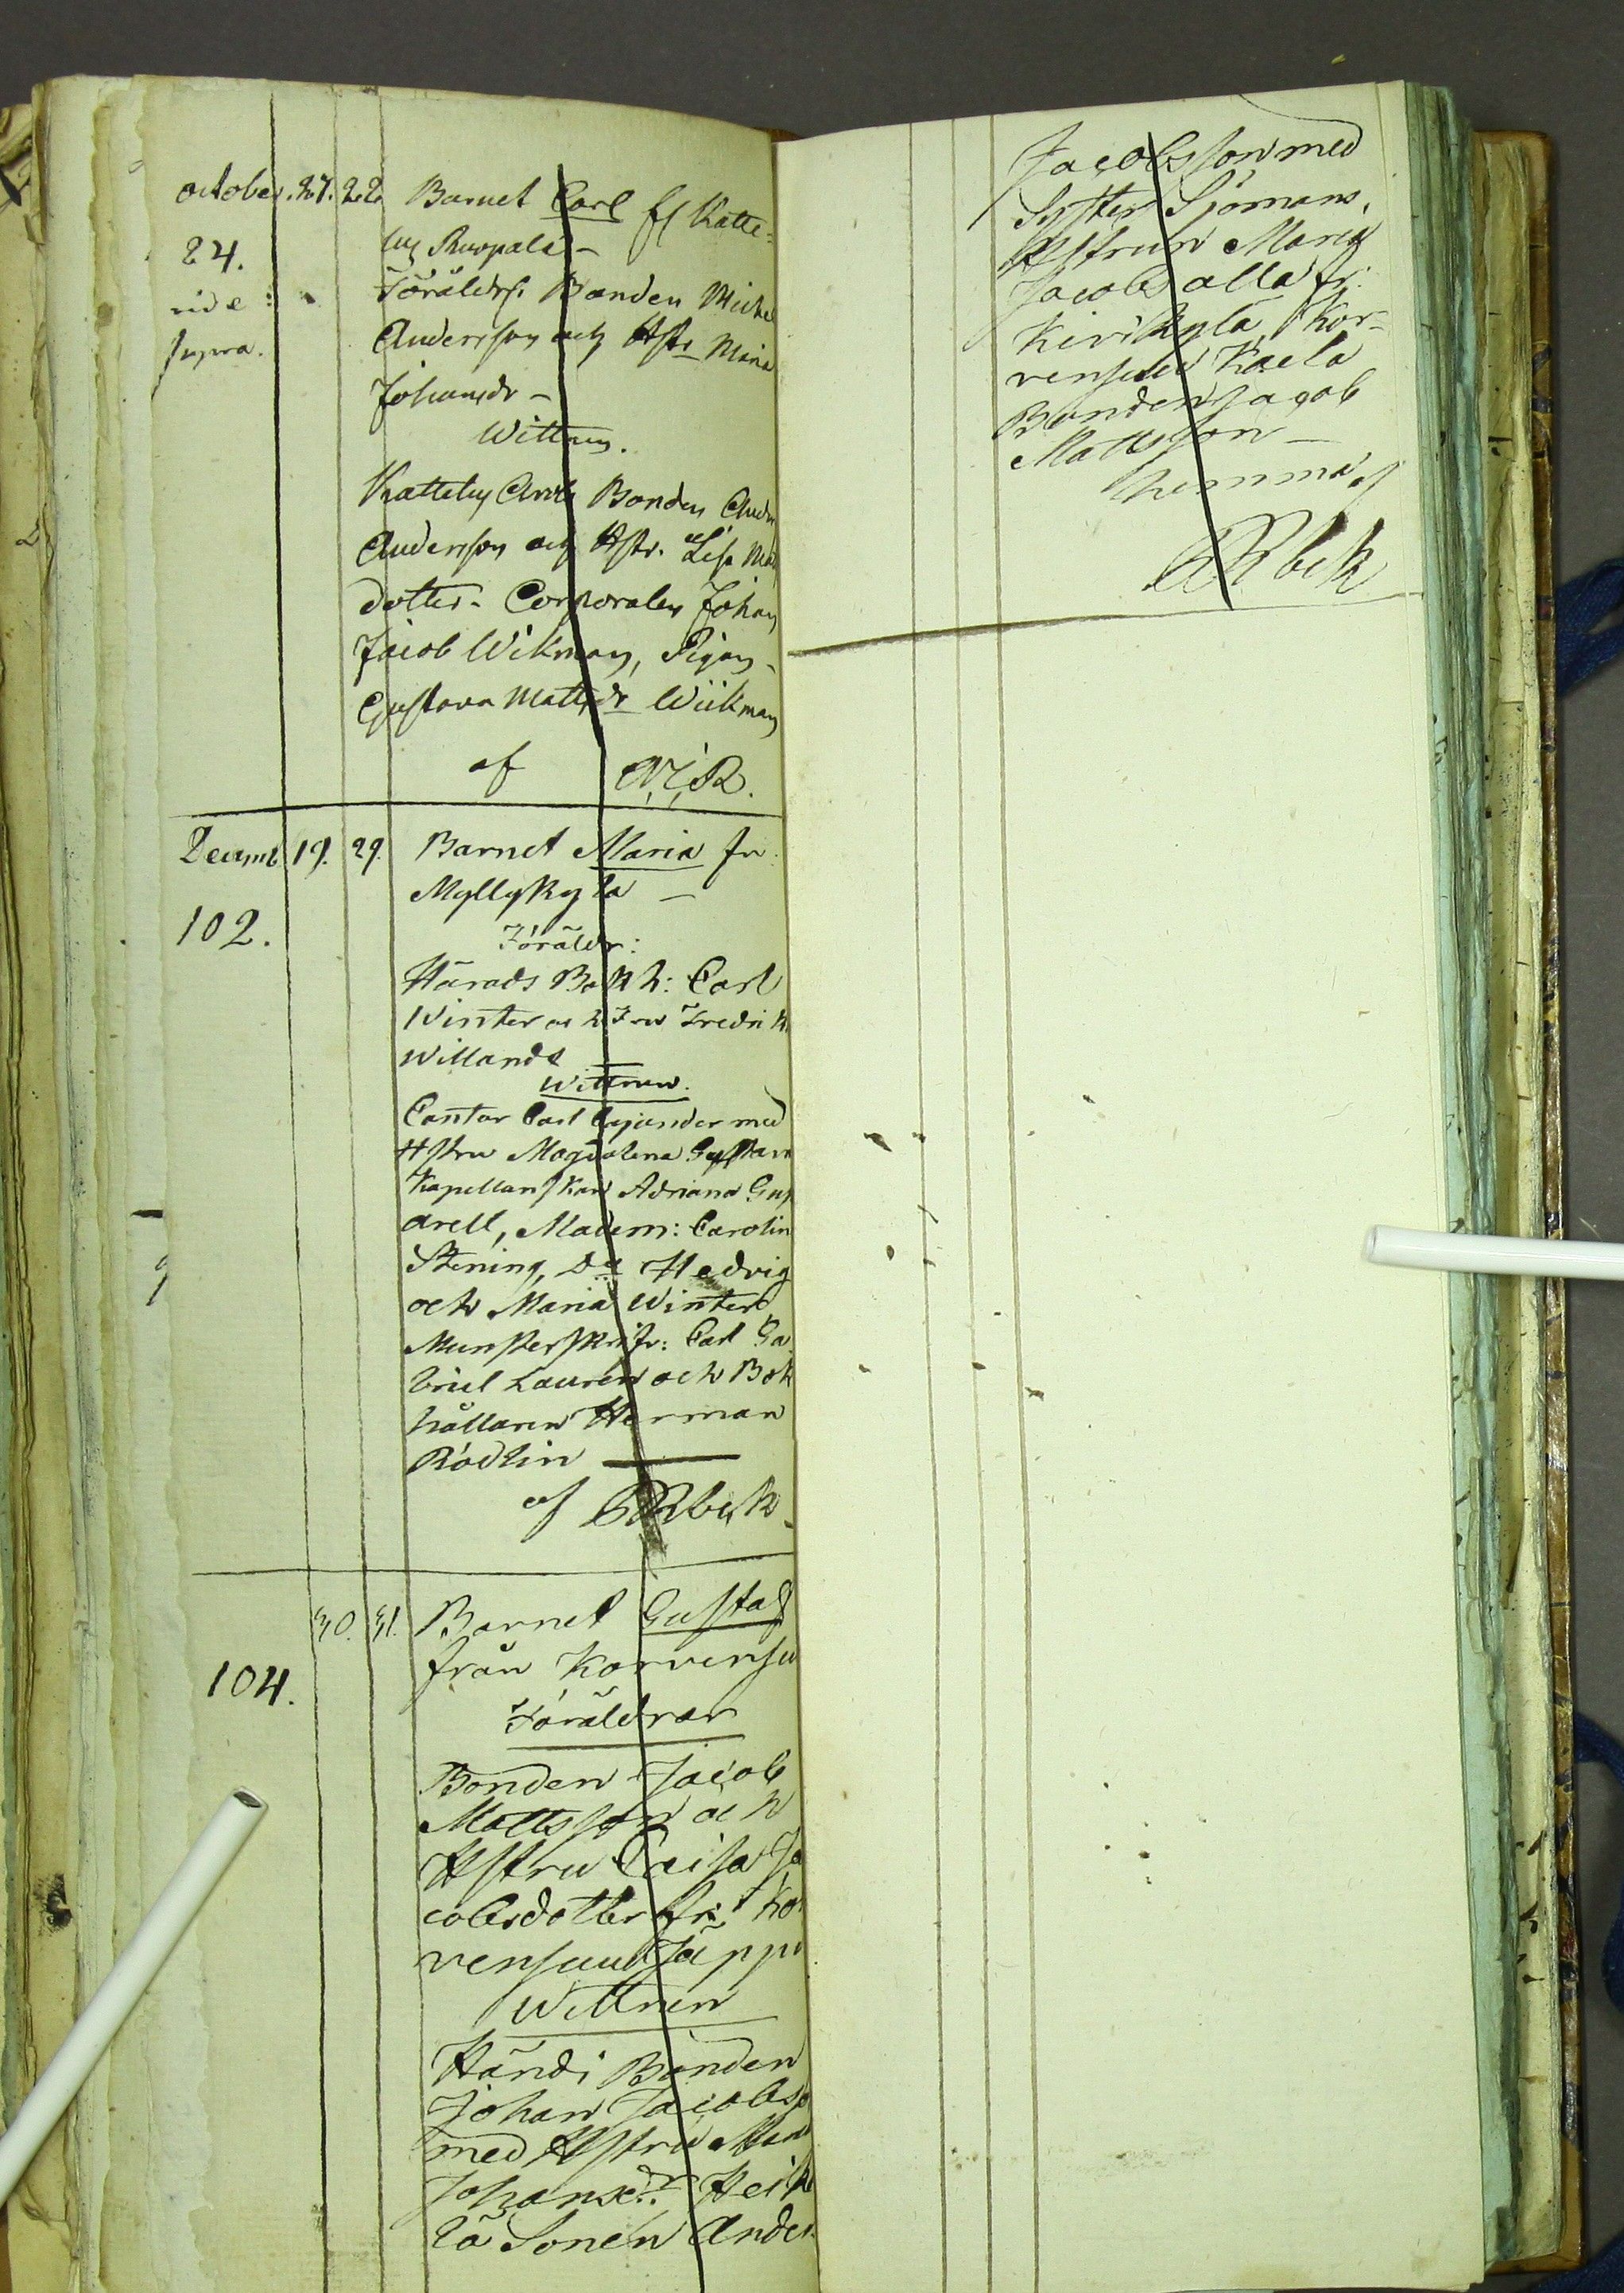 October. 27. 22. Barnet Carl fr Katte=
24. Ruopala -
vide: Föräldr: Bonden Michel
supra. Andersson och Hstr Maria
Johansdr -
Wittnen.
Kattelus Bonden Andr
Andersson och Hstr. Lisa Mat
dotter - Corporalen Johan
Jacob Wikman, Pigan
Gustava Mattsdr Wiikman
af
Decemb 19. 29. Barnet Maria fr.
Myllykylä -
102. Föräldr:
Härads Bokh: Carl
Winter och Fru Fredrik
Willands
Wittnen.
Cantor Carl med
Hstru Magdalena Gustav
Kapellanskan Adriana
arell, Madem: Carolin
Stening, Do Hedvig
och Maria Winter
Munsterskrifv: Carl Ga
briel Laurén och Bok
hållaren Herman
Rödlin
af
30. 31. Barnet Gustaf
från Korvensu
104. Föräldrar
Bonden Jacob
Mattsson och
Hstru Caisa Ja
cobsdotter fr: Kor
vensuu Jäppi
Wittnen
Händi Bonden
Johan Jacobsso
med Hstru Mari
Johansdr. Heik
lä Sonen Ander
Jacobsson med
Syster Sjömans,
Hstrun Maria
Jacobs alla fr:
Kirikylä, Kor-
vensuu Kaela
Bonden Jacob
Mattsson -
hemma af